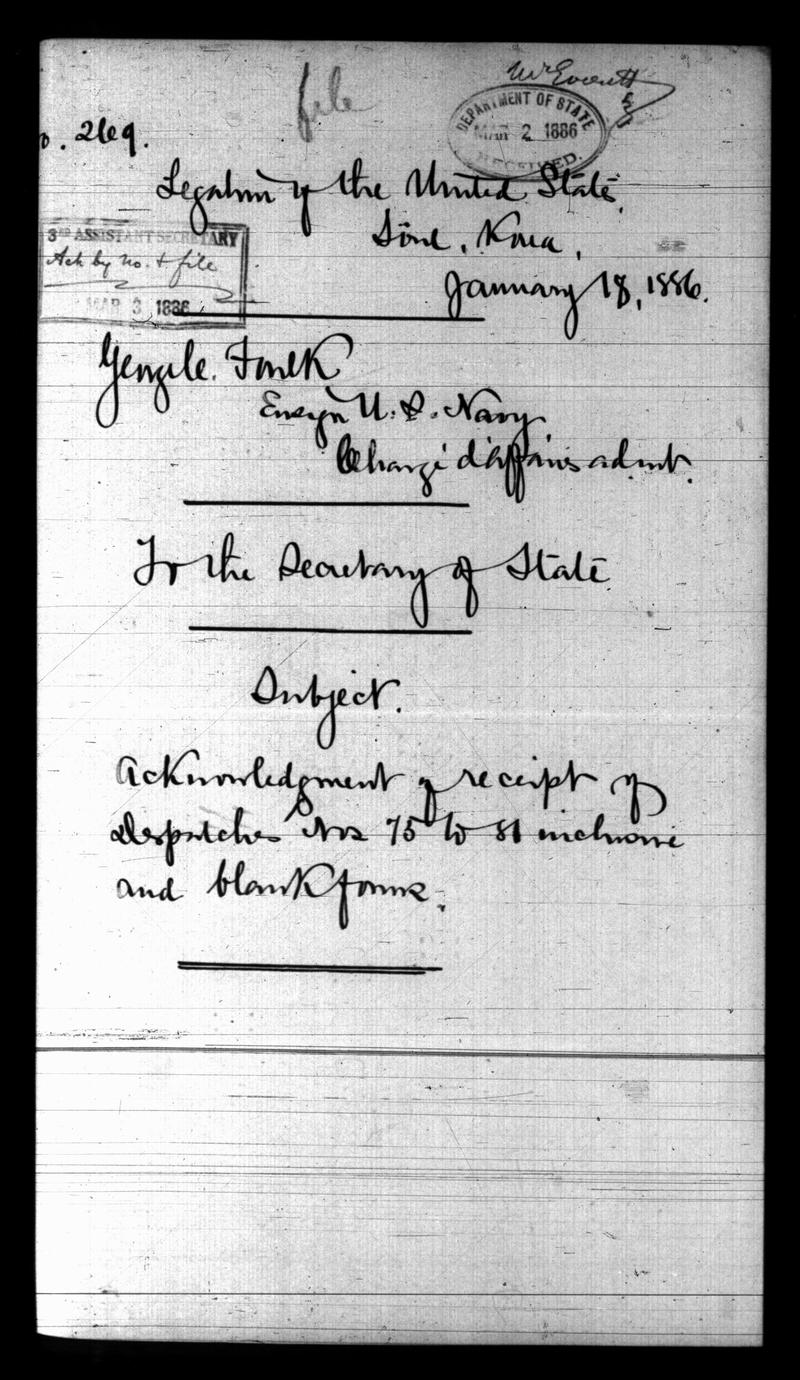 file
Mr Everett
DEPARTMENT OF STATE
MAR 2 1886
RECEIVED.
o. 269.
Legation of the United States,
Söul, Korea,
3RD ASSISTANT SECRETARY
Ack by No. & file
MAR 3 1886
January 18, 1886.
George C. Foulk
Ensign U. S. Navy
Chargé d'affaires ad int.
To the Secretary of State
Subject.
Acknowledgment of receipt of
despatches Nos 75 to 81 inclusive
and blank forms.